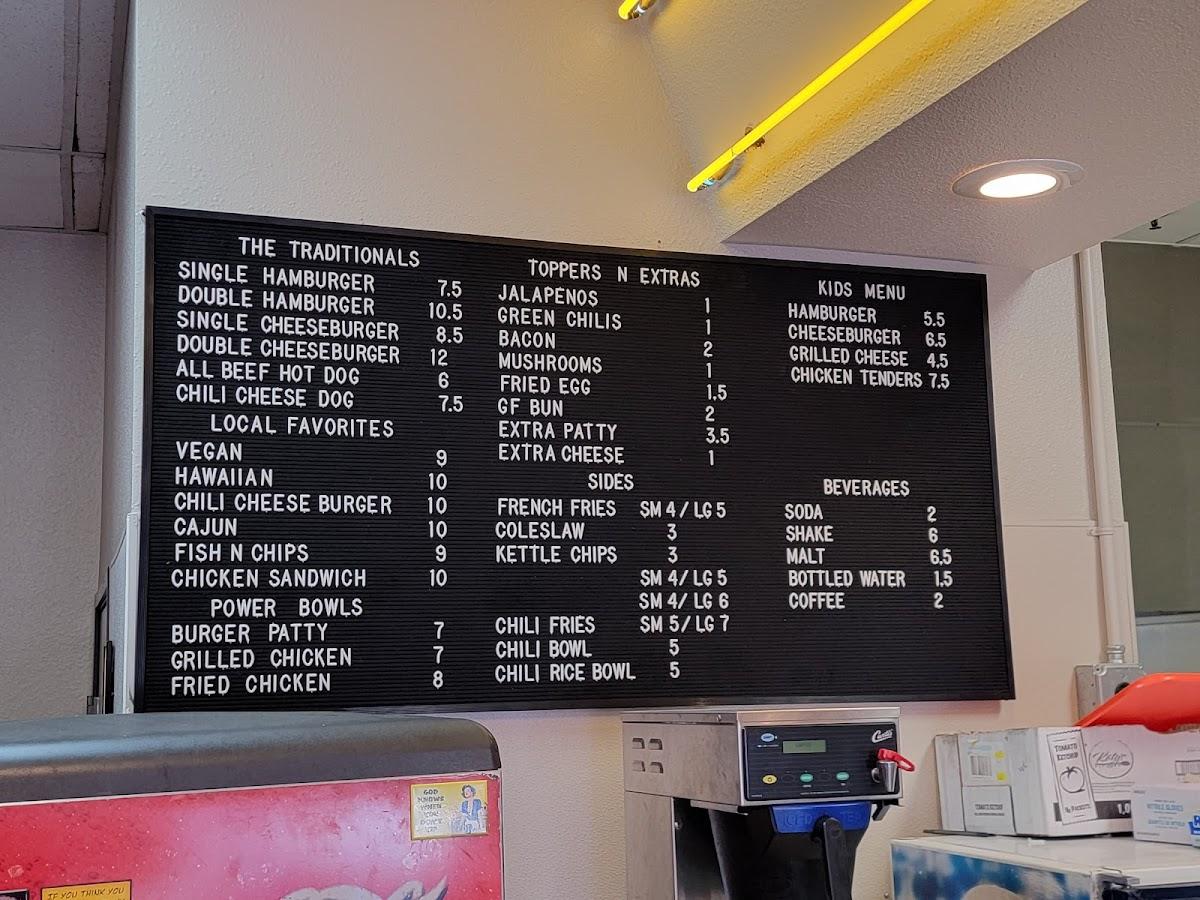 THE TRADITIONALS
SINGLE HAMBURGER 7.5
DOUBLE HAMBURGER 10.5
SINGLE CHEESEBURGER 8.5
DOUBLE CHEESEBURGER 12
ALL BEEF HOT DOG 6
CHILI CHEESE DOG 7.5
LOCAL FAVORITES
VEGAN 9
HAWAIIAN 10
CHILI CHEESE BURGER 10
CAJUN 10
FISH N CHIPS 9
CHICKEN SANDWICH 10
POWER BOWLS
BURGER PATTY 7
GRILLED CHICKEN 7
FRIED CHICKEN 8
TOPPERS N EXTRAS
JALAPENOS 1
GREEN CHILIS 1
BACON 2
MUSHROOMS 1
FRIED EGG 1.5
GF BUN 2
EXTRA PATTY 3.5
EXTRA CHEESE 1
SIDES
FRENCH FRIES SM 4 / LG 5
COLESLAW 3
KETTLE CHIPS 3
SM 4 / LG 5
SM 4 / LG 6
CHILI FRIES SM 5 / LG 7
CHILI BOWL 5
CHILI RICE BOWL 5
KIDS MENU
HAMBURGER 5.5
CHEESEBURGER 6.5
GRILLED CHEESE 4.5
CHICKEN TENDERS 7.5
BEVERAGES
SODA 2
SHAKE 6
MALT 6.5
BOTTLED WATER 1.5
COFFEE 2
Curtis
ICED TEA
GOD
KNOWS
WHEN
YOU
DON'T
TIP
IF YOU THINK YOU
TOMATO
KETCHUP
TOMATO KETCHUP
NITRILE GLOVES